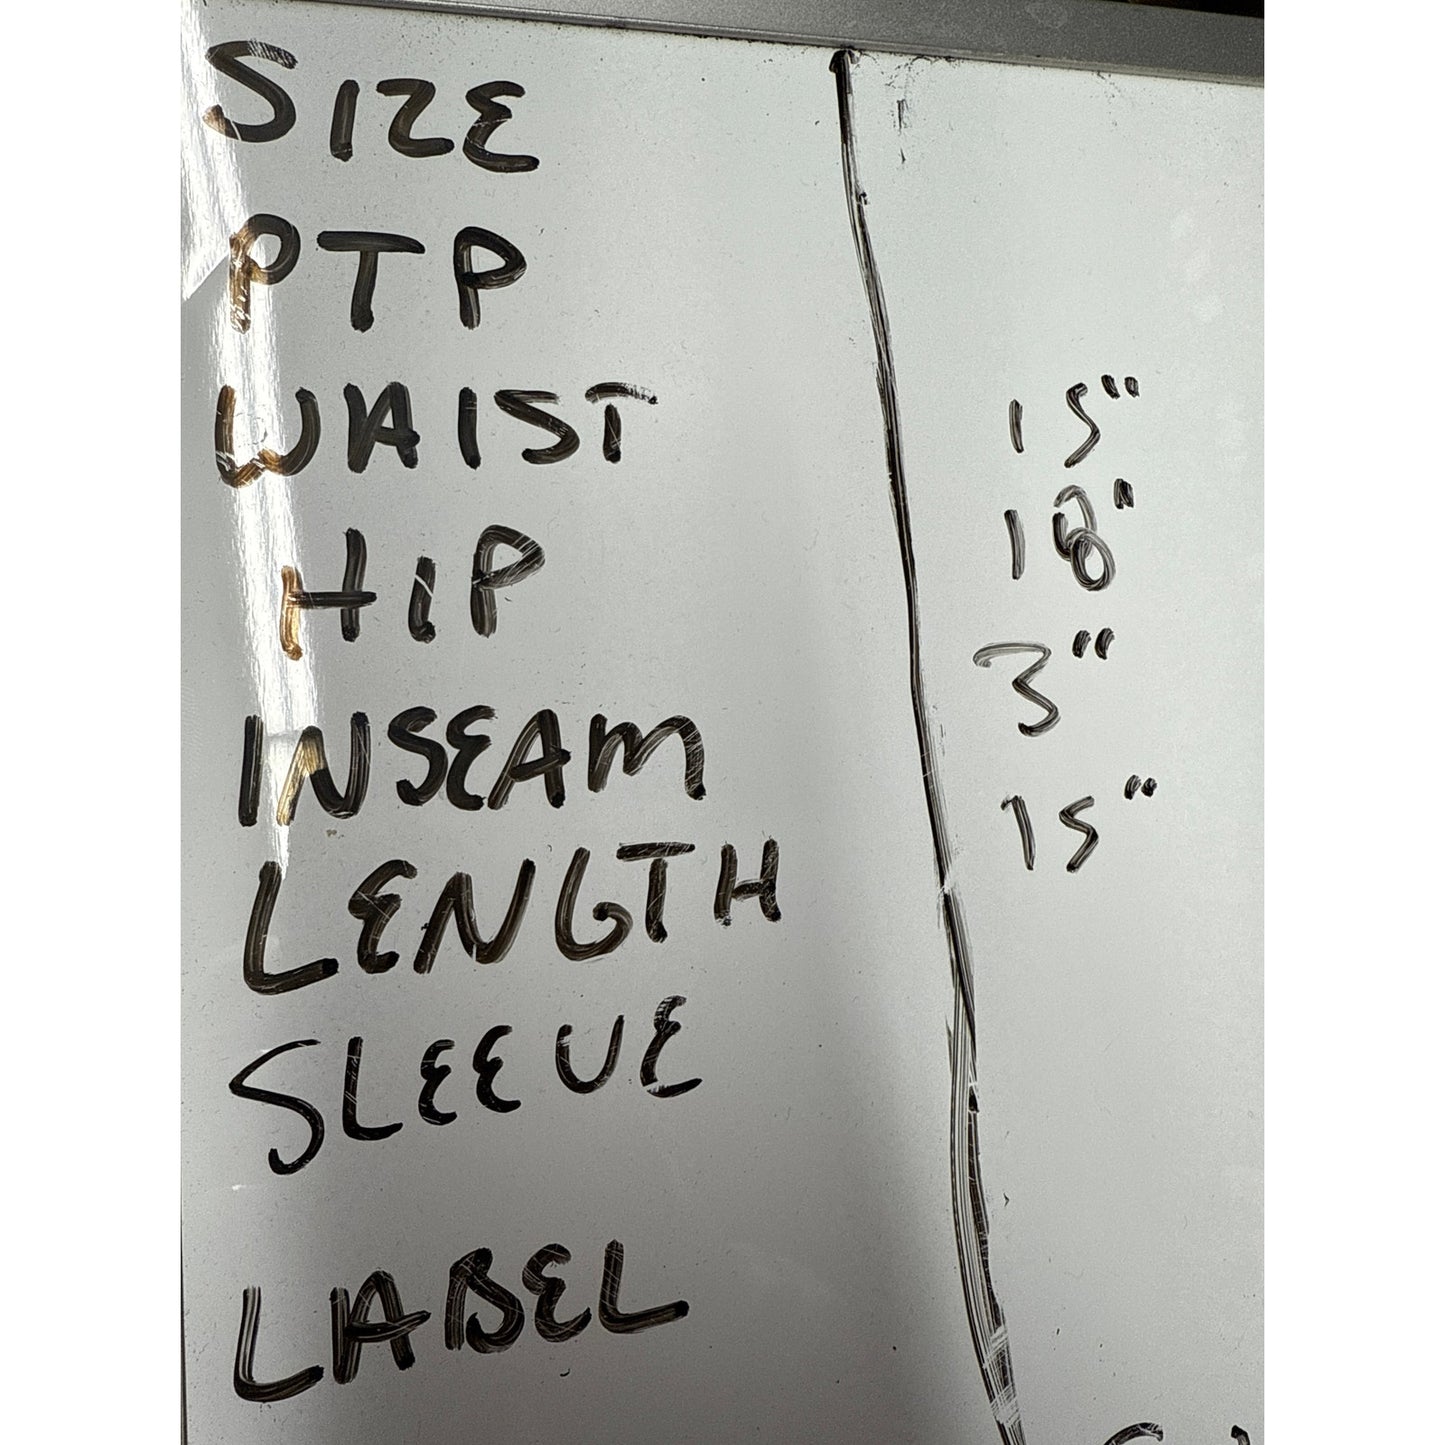 SIZE
PTP
WAIST 15"
HIP 18"
INSEAM 3"
LENGTH 15"
SLEEVE
LABEL